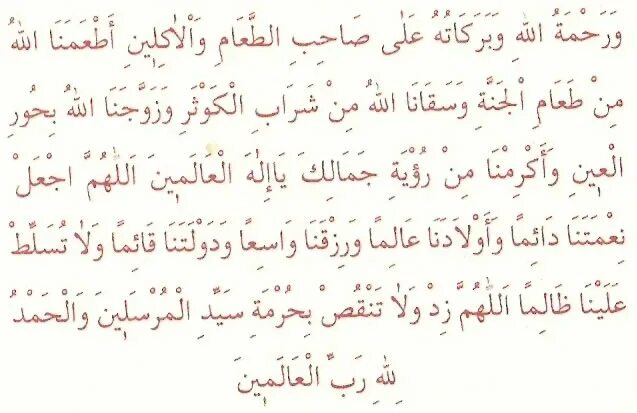 وَرَحْمَةُ اللهِ وَبَرَكَاتُهُ عَلٰى صَاحِبِ الطَّعَامِ وَاْلاٰكِلِينَ أَطْعَمَنَا اللهُ
مِنْ طَعَامِ الْجَنَّةِ وَسَقَانَا اللهُ مِنْ شَرَابِ الْكَوْثَرِ وَزَوَّجَنَا اللهُ بِحُورِ
الْعِينِ وَأَكْرِمْنَا مِنْ رُؤْيَةِ جَمَالِكَ يَاإِلٰهَ الْعَالَمِينَ اَللّٰهُمَّ اجْعَلْ
نِعْمَتَنَا دَائِماً وَأَوْلَادَنَا عَالِماً وَرِزْقَنَا وَاسِعاً وَدَوْلَتَنَا قَائِماً وَلَا تُسَلِّطْ
عَلَيْنَا ظَالِماً اَللّٰهُمَّ زِدْ وَلَا تَنْقُصْ بِحُرْمَةِ سَيِّدِ الْمُرْسَلِينَ وَالْحَمْدُ
لِلّٰهِ رَبِّ الْعَالَمِينَ